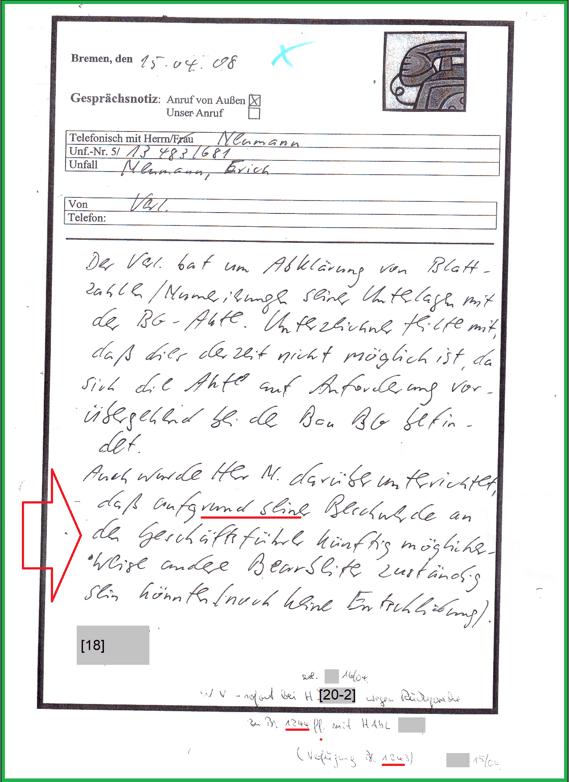 Bremen, den 15.04.08
Gesprächsnotiz: Anruf von Außen ☒
Unser Anruf ☐
Telefonisch mit Herrn/Frau Neumann
Unf.-Nr. 5/ 13 483/681
Unfall Neumann, Erich
Von Verl.
Telefon:
Der Verl. bat um Abklärung von Blatt-
zahlen/Numerierungen seiner Unterlagen mit
der BG-Akte. Unterzeichner teilte mit,
daß dies derzeit nicht möglich ist, da
sich die Akte auf Anforderung vor-
übergehend bei der Bau BG befin-
det.
Auch wurde Herr N. darüber unterrichtet,
daß aufgrund seiner Beschwerde an
den Geschäftsführer künftig möglicher-
weise andere Bearbeiter zuständig
sein könnten (noch keine Entscheidung).
[18]
14/04
WV - sofort bei H [20-2] wegen Rücksprache
zu Bl. 1244 ff. mit
(Verfügung Bl. 1243) 15/04